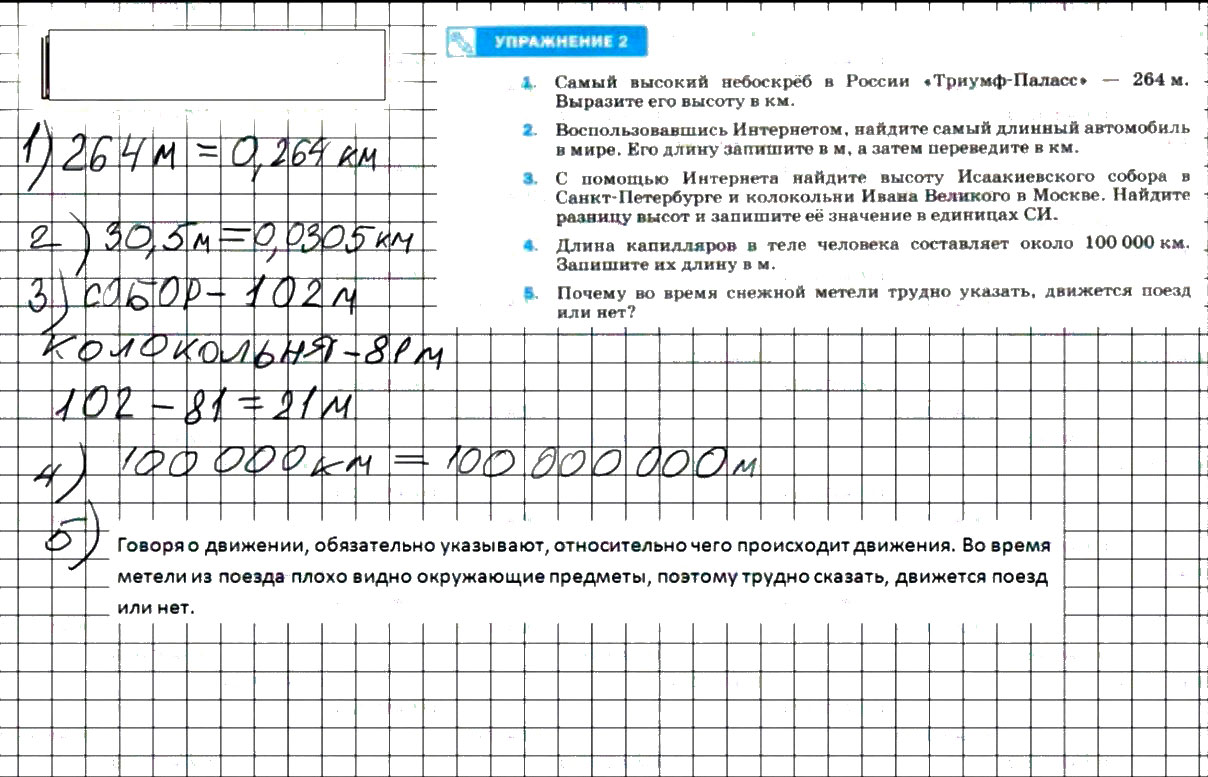 УПРАЖНЕНИЕ 2
1. Самый высокий небоскрёб в России «Триумф-Паласс» — 264 м.
Выразите его высоту в км.
2. Воспользовавшись Интернетом, найдите самый длинный автомобиль
в мире. Его длину запишите в м, а затем переведите в км.
3. С помощью Интернета найдите высоту Исаакиевского собора в
Санкт-Петербурге и колокольни Ивана Великого в Москве. Найдите
разницу высот и запишите её значение в единицах СИ.
4. Длина капилляров в теле человека составляет около 100 000 км.
Запишите их длину в м.
5. Почему во время снежной метели трудно указать, движется поезд
или нет?
1) 264 м = 0,264 км
2) 30,5 м = 0,0305 км
3) собор - 102 м
колокольня - 81 м
102 - 81 = 21 м
4) 100 000 км = 100 000 000 м
5) Говоря о движении, обязательно указывают, относительно чего происходит движения. Во время
метели из поезда плохо видно окружающие предметы, поэтому трудно сказать, движется поезд
или нет.